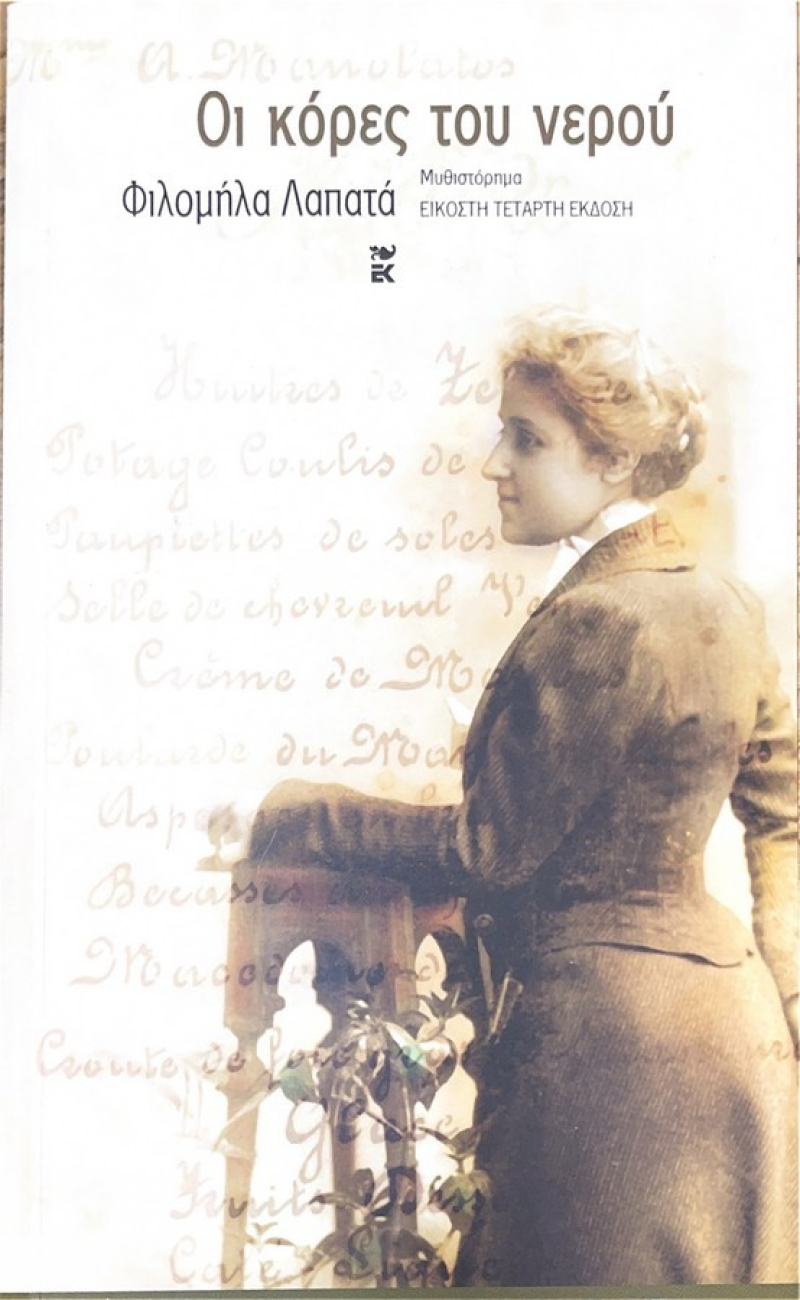 Mme A. Manolatos
Οι κόρες του νερού
Φιλομήλα Λαπατά
Μυθιστόρημα
ΕΙΚΟΣΤΗ ΤΕΤΑΡΤΗ ΕΚΔΟΣΗ
ΕΚ
Huitres de
Potage Coulis de
Paupiettes de soles
Selle de chevreuil
Crème de
du
Becasses
Croute de foie
Glace
Fruits